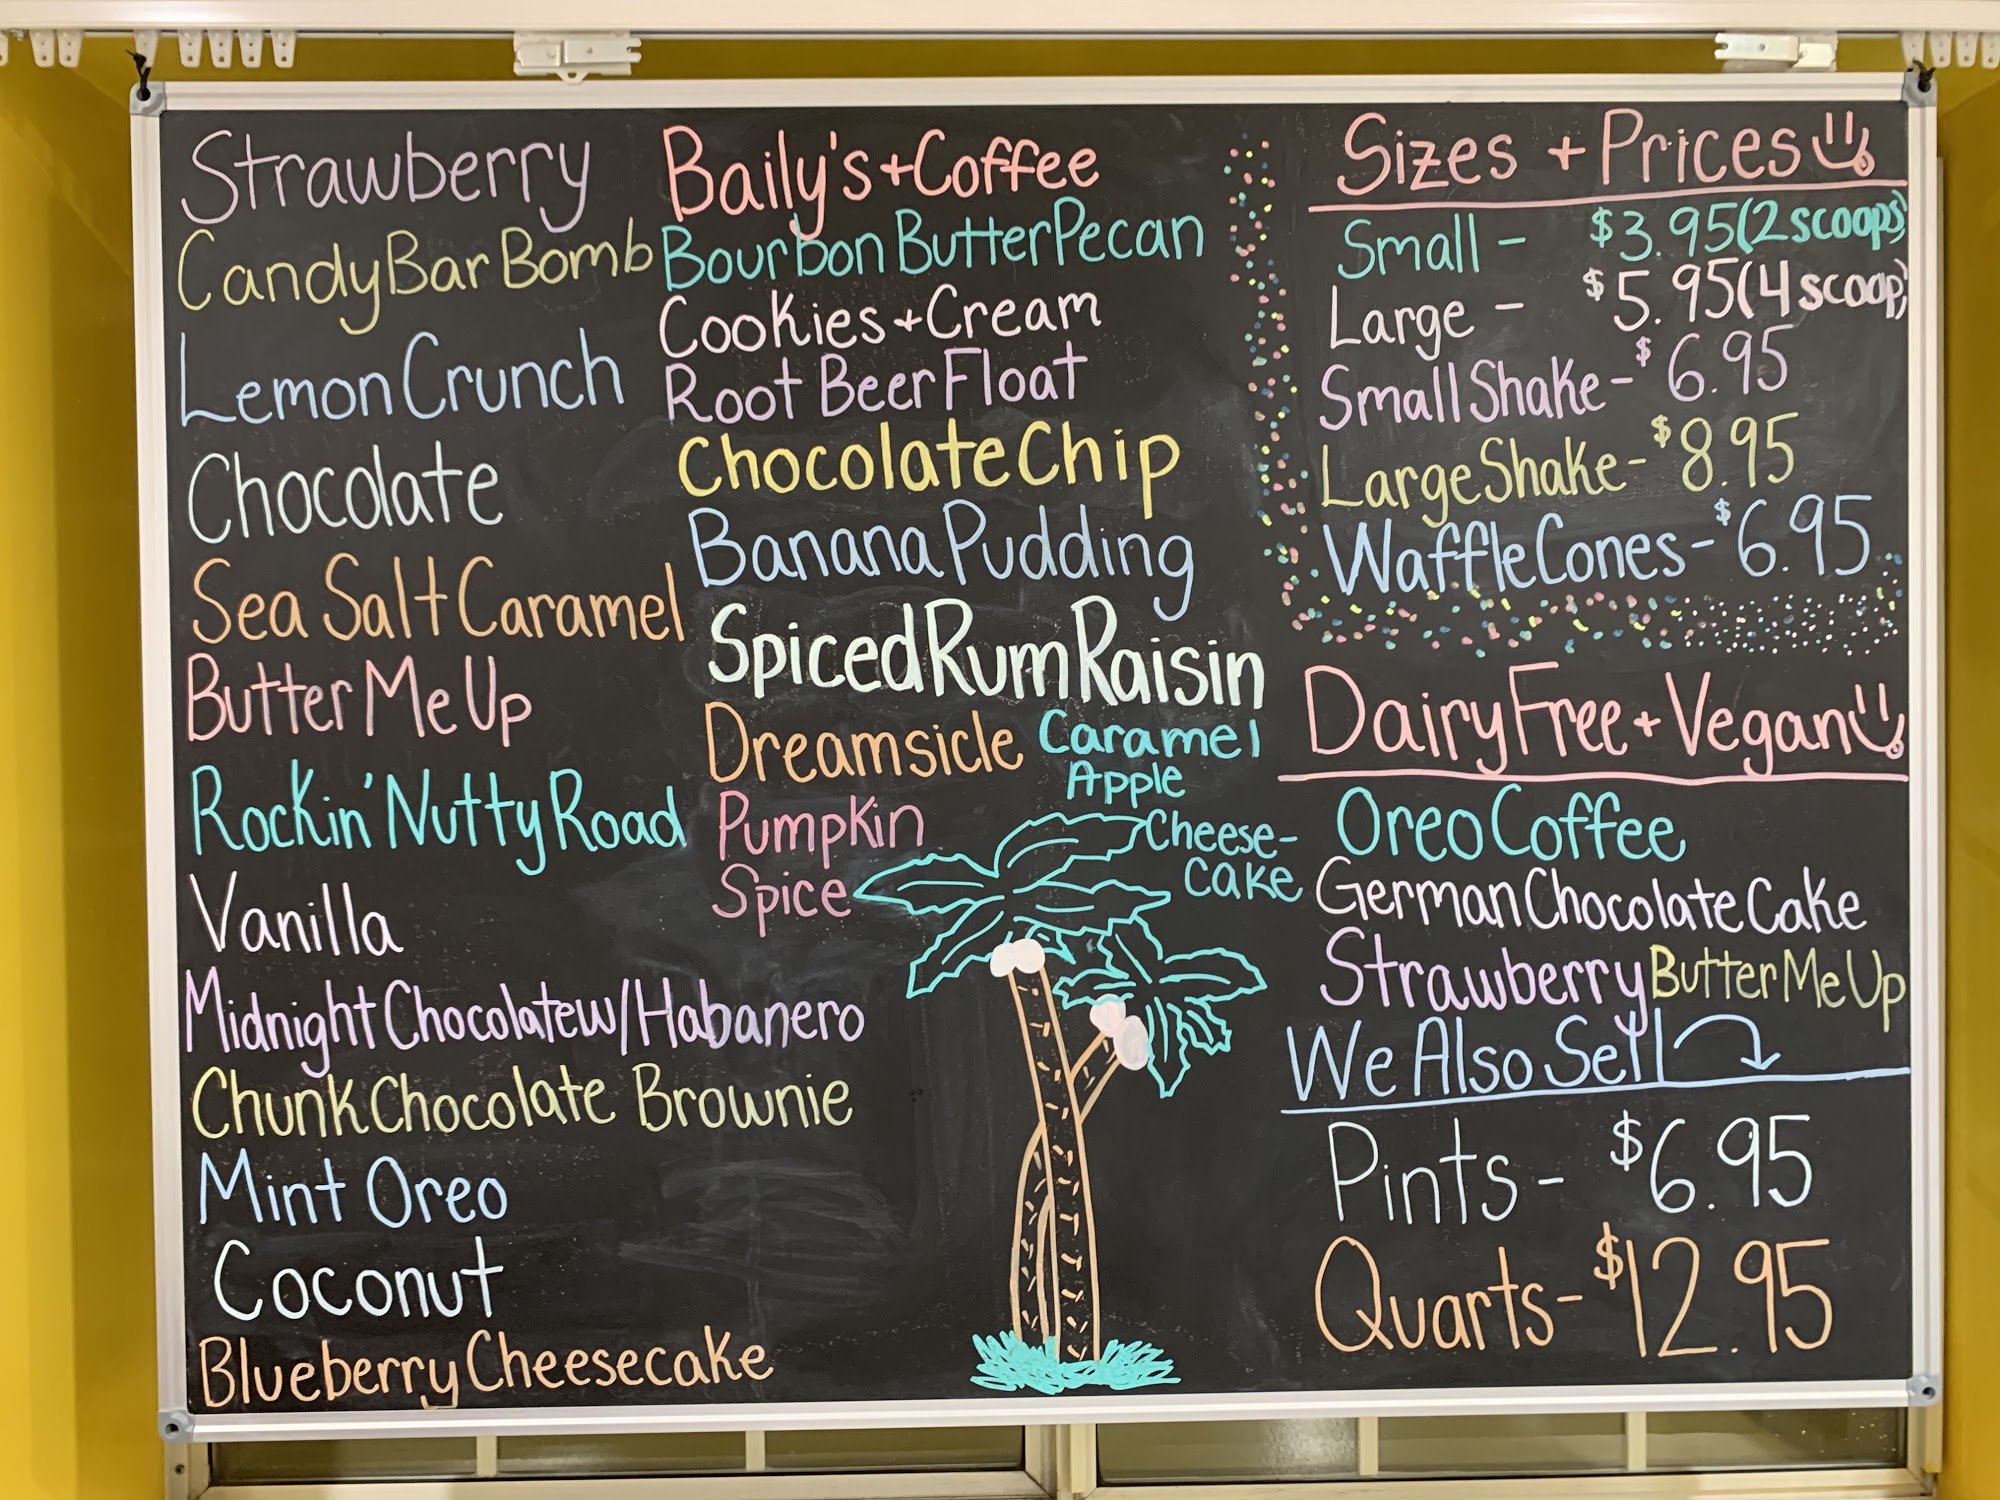 Strawberry
Candy Bar Bomb
Lemon Crunch
Chocolate
Sea Salt Caramel
Butter Me Up
Rockin' Nutty Road
Vanilla
Midnight Chocolate w/Habanero
Chunk Chocolate Brownie
Mint Oreo
Coconut
Blueberry Cheesecake
Baily's + Coffee
Bourbon Butter Pecan
Cookies + Cream
Root Beer Float
Chocolate Chip
Banana Pudding
Spiced Rum Raisin
Dreamsicle
Pumpkin
Spice
Caramel
Apple
Cheese-
cake
Sizes + Prices
Small - $3.95 (2 scoops)
Large - $5.95 (4 scoop)
Small Shake - $6.95
Large Shake - $8.95
Waffle Cones - $6.95
Dairy Free + Vegan
Oreo Coffee
German Chocolate Cake
Strawberry Butter Me Up
We Also Sell
Pints - $6.95
Quarts - $12.95